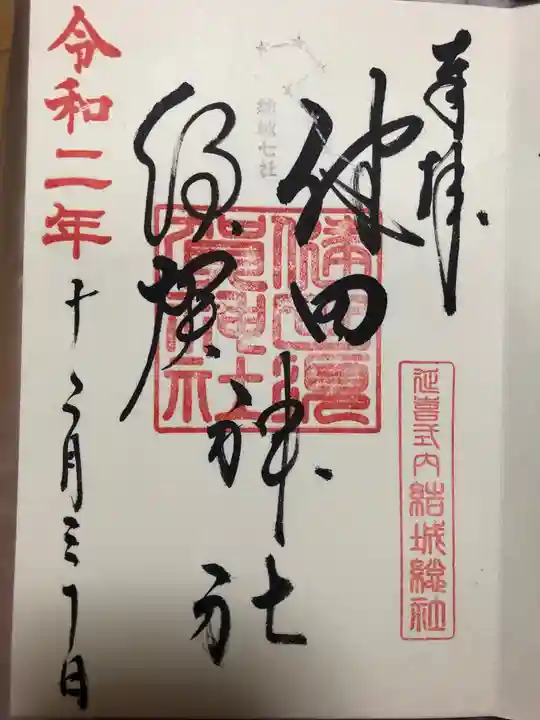 奉拝
延喜式内結城総社
結城七社
健田
須賀
神社
健田須賀神社
令和二年
十二月三十日